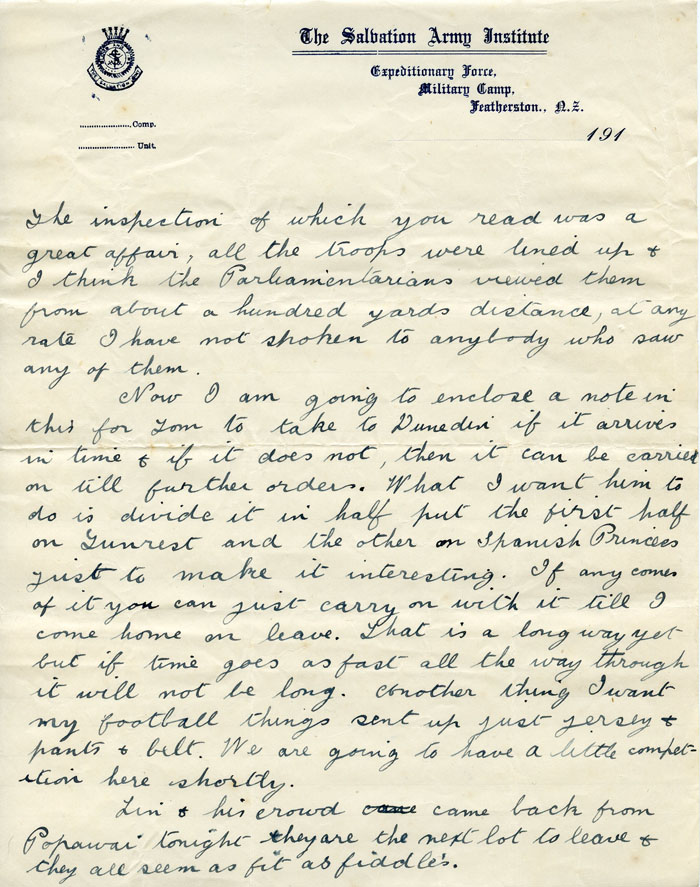 The Salvation Army Institute
Expeditionary Force,
Military Camp,
Featherston., N.Z.
............... Comp.
................ Unit.
191
The inspection of which you read was a
great affair, all the troops were lined up &
I think the Parliamentarians viewed them
from about a hundred yards distance, at any
rate I have not spoken to anybody who saw
any of them.
Now I am going to enclose a note in
this for Tom to take to Dunedin if it arrives
in time & if it does not, then it can be carried
on till further orders. What I want him to
do is divide it in half put the first half
on Gunrest and the other on Spanish Princess
just to make it interesting. If any comes
of it you can just carry on with it till I
come home on leave. That is a long way yet
but if time goes as fast all the way through
it will not be long. Another thing I want
my football things sent up just jersey &
pants & belt. We are going to have a little compet-
ition here shortly.
Lin & his crowd came came back from
Popawai tonight they are the next lot to leave &
they all seem as fit as fiddle's.